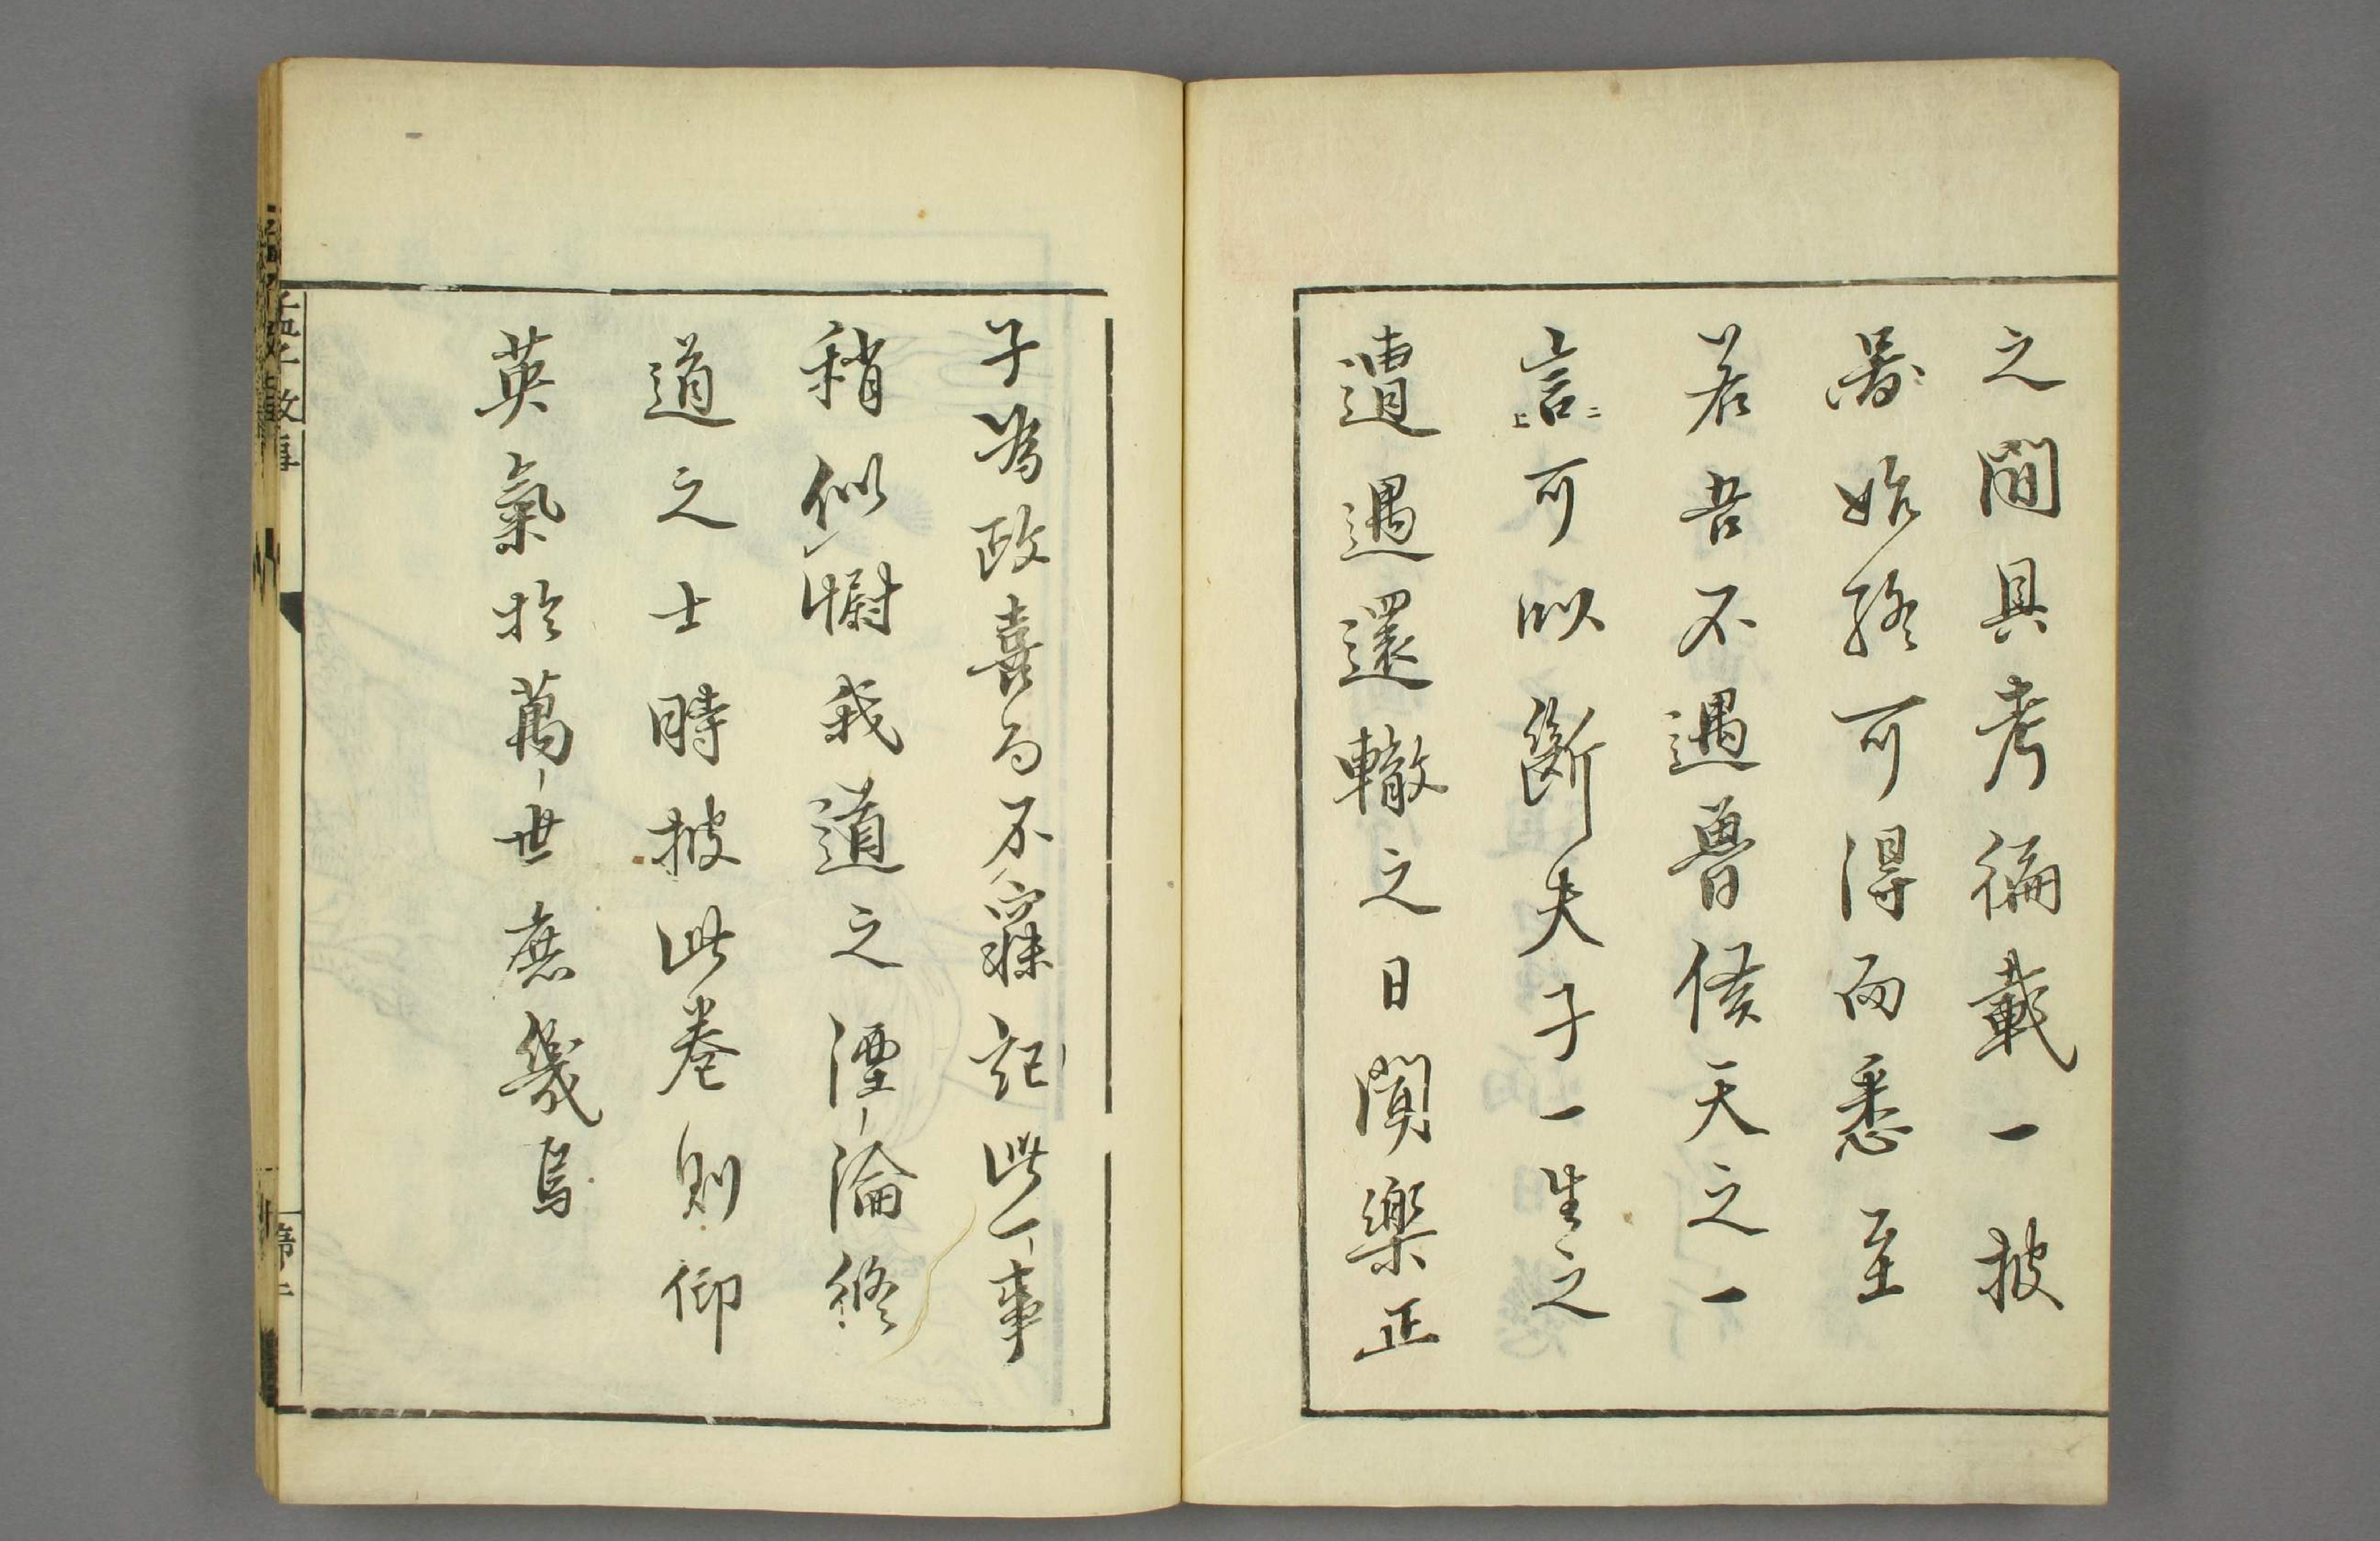 之間具考徧載一披
畧始終可得而悉至
若吾不遇魯侯天之一
言可以斷夫子一生之
遭遇還轍之日聞樂正
子爲政喜而不寐記此一事
稍似慰我道之湮淪後
道之士時披此卷則仰
英氣於萬世庶幾焉
孟子故事
序二